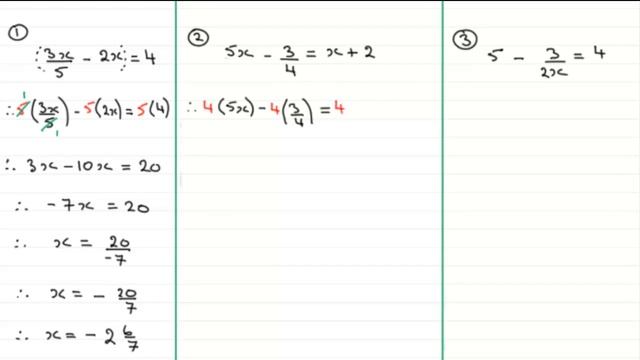 ①
3x/5 - 2x = 4
∴ 5(3x/5) - 5(2x) = 5(4)
1
1
∴ 3x - 10x = 20
∴ -7x = 20
∴ x = 20/-7
∴ x = - 20/7
∴ x = - 2 6/7
②
5x - 3/4 = x + 2
∴ 4(5x) - 4(3/4) = 4
③
5 - 3/2x = 4